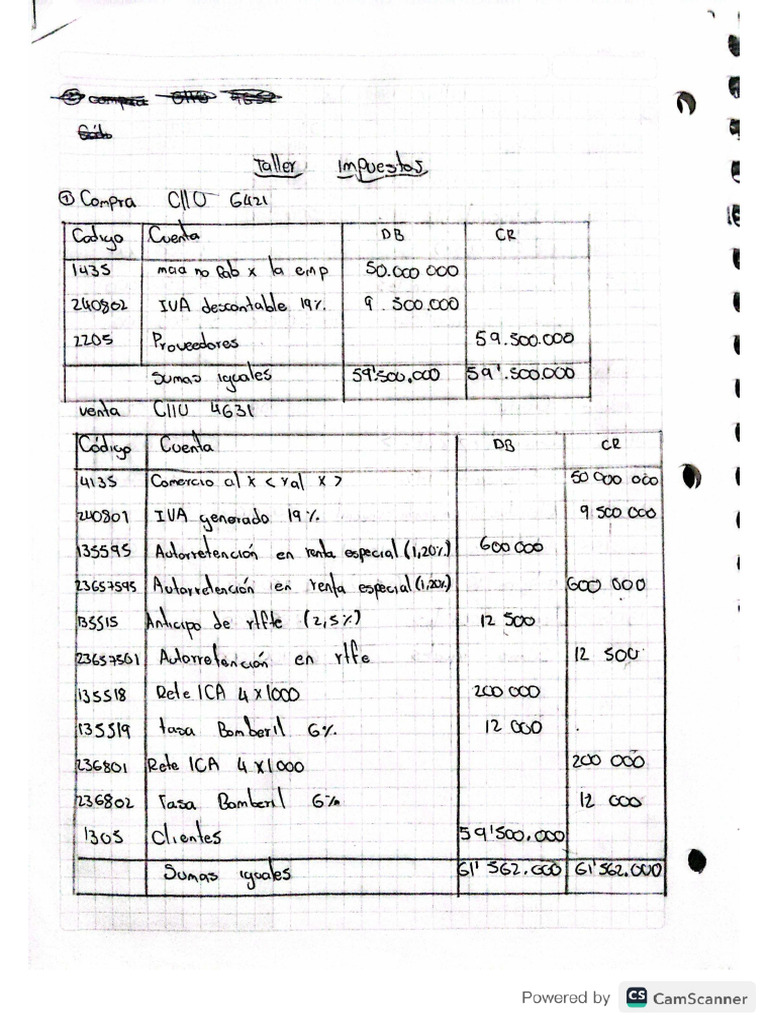 Taller Impuestos
① Compra CIIU 6421
Codigo Cuenta DB CR
1435 mcia no fab x la emp 50.000 000
240802 IVA descontable 19% 9.500.000
2205 Proveedores 59.500.000
Sumas iguales 59'500.000 59'.500.000
venta CIIU 4631
Código Cuenta DB CR
4135 Comercio al x < y al x > 50 000 000
240801 IVA generado 19% 9 500 000
135595 Autorretención en renta especial (1,20%) 600 000
23657595 Autorretención en renta especial (1,20%) 600 000
135515 Anticipo de rtfte (2,5%) 12 500
23657501 Autorretención en rtfe 12 500
135518 Rete ICA 4x1000 200 000
135519 tasa Bomberil 6% 12 000
236801 Rete ICA 4x1000 200 000
236802 Tasa Bomberil 6% 12 000
1305 Clientes 59'500.000
Sumas iguales 61'562.000 61'562.000
Powered by CS CamScanner